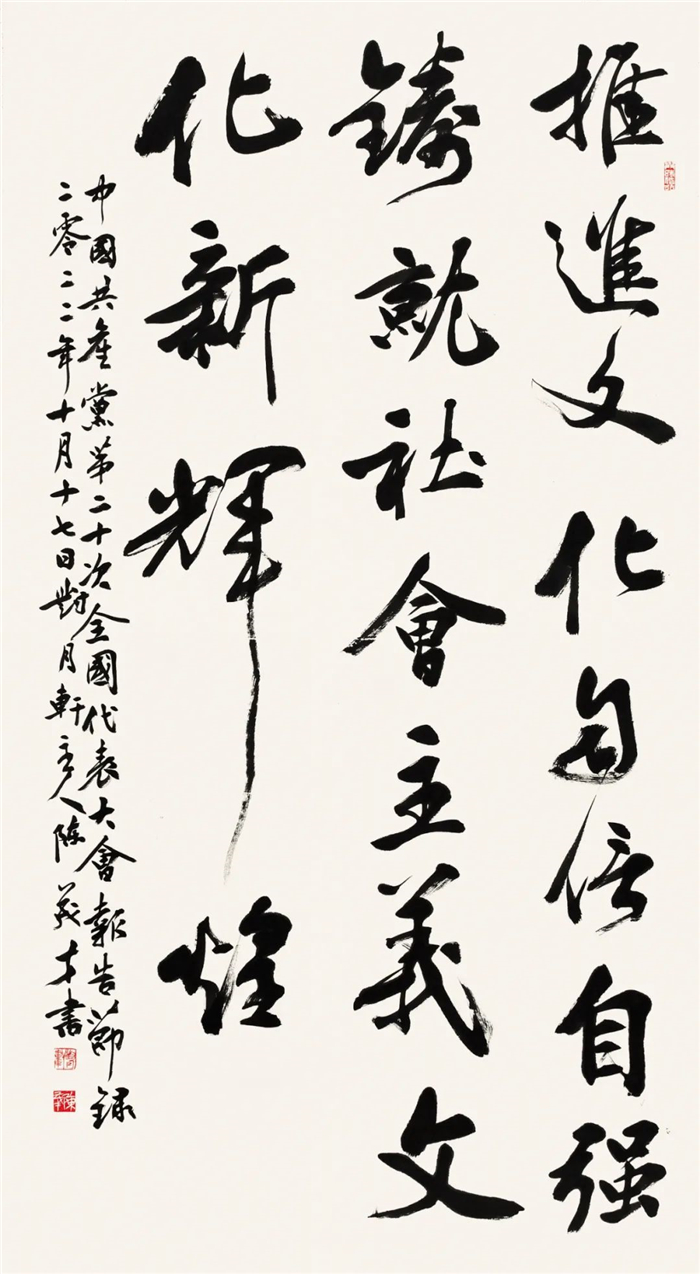 推進文化自信自强
鑄就社會主義文
化新輝煌
中國共產黨第二十次全國代表大會報告節録
二零二二年十月十七日對月軒主人陈義才書